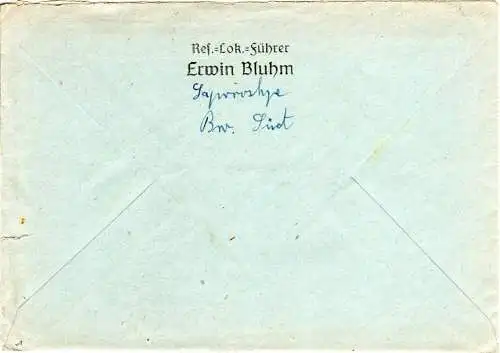 Res.=Lok.=Führer
Erwin Bluhm
Saporoshje
Bw. Süd